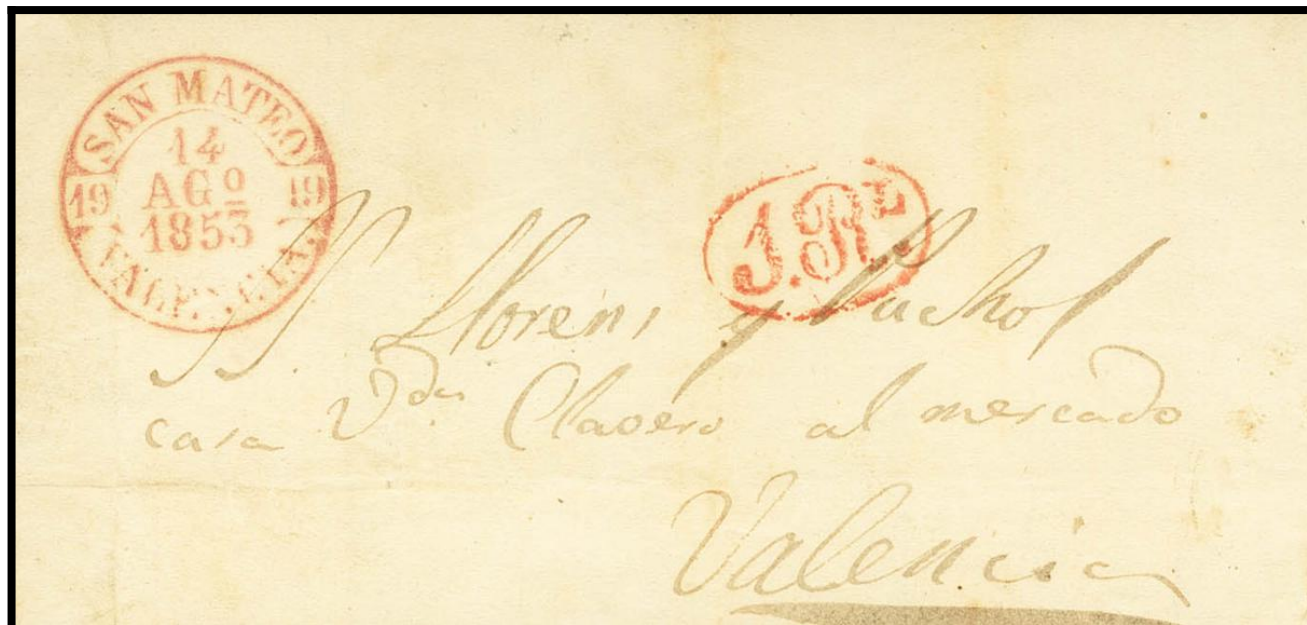 SAN MATEO
19 14 19
AGº
1853
VALENCIA.
1.Rˡ
SS. Llorens y Puchol
casa Vda. Clavero al mercado
Valencia